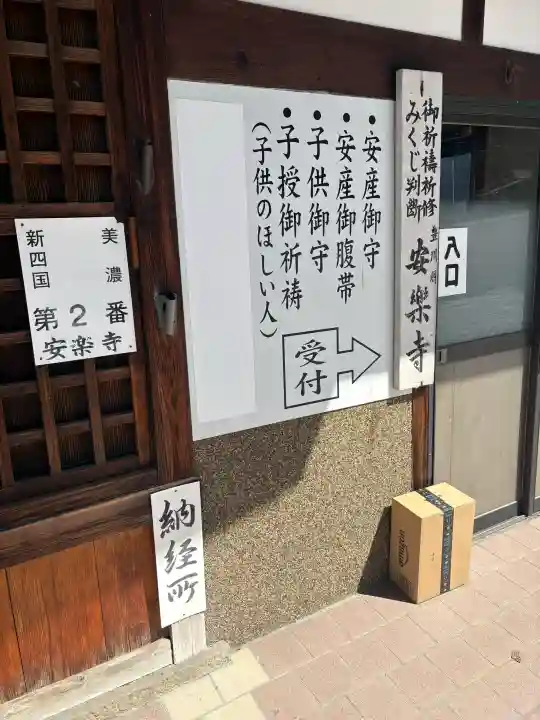 美濃
新四国
第2番
安楽寺
納経所
•安産御守
•安産御腹帯
•子供御守
•子授御祈祷
(子供のほしい人)
受付
御祈禱祈修
みくじ判断
安樂寺
入口
amazon